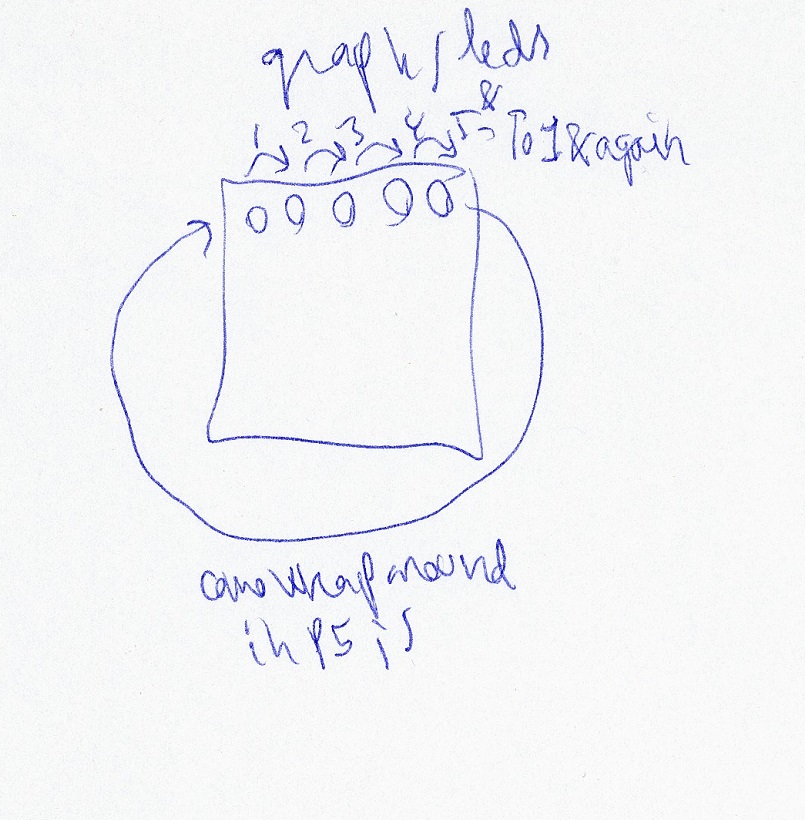 graph / leds
1 2 3 4 5 &
To 1 & again
wrap around
in p5 js